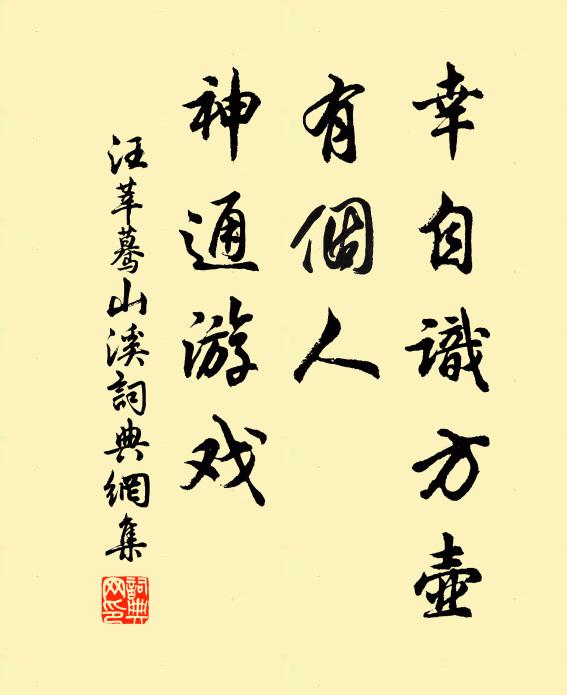 幸自識方壺
有個人
神通游戏
汪莘驀山溪詞典網集
詞典网印